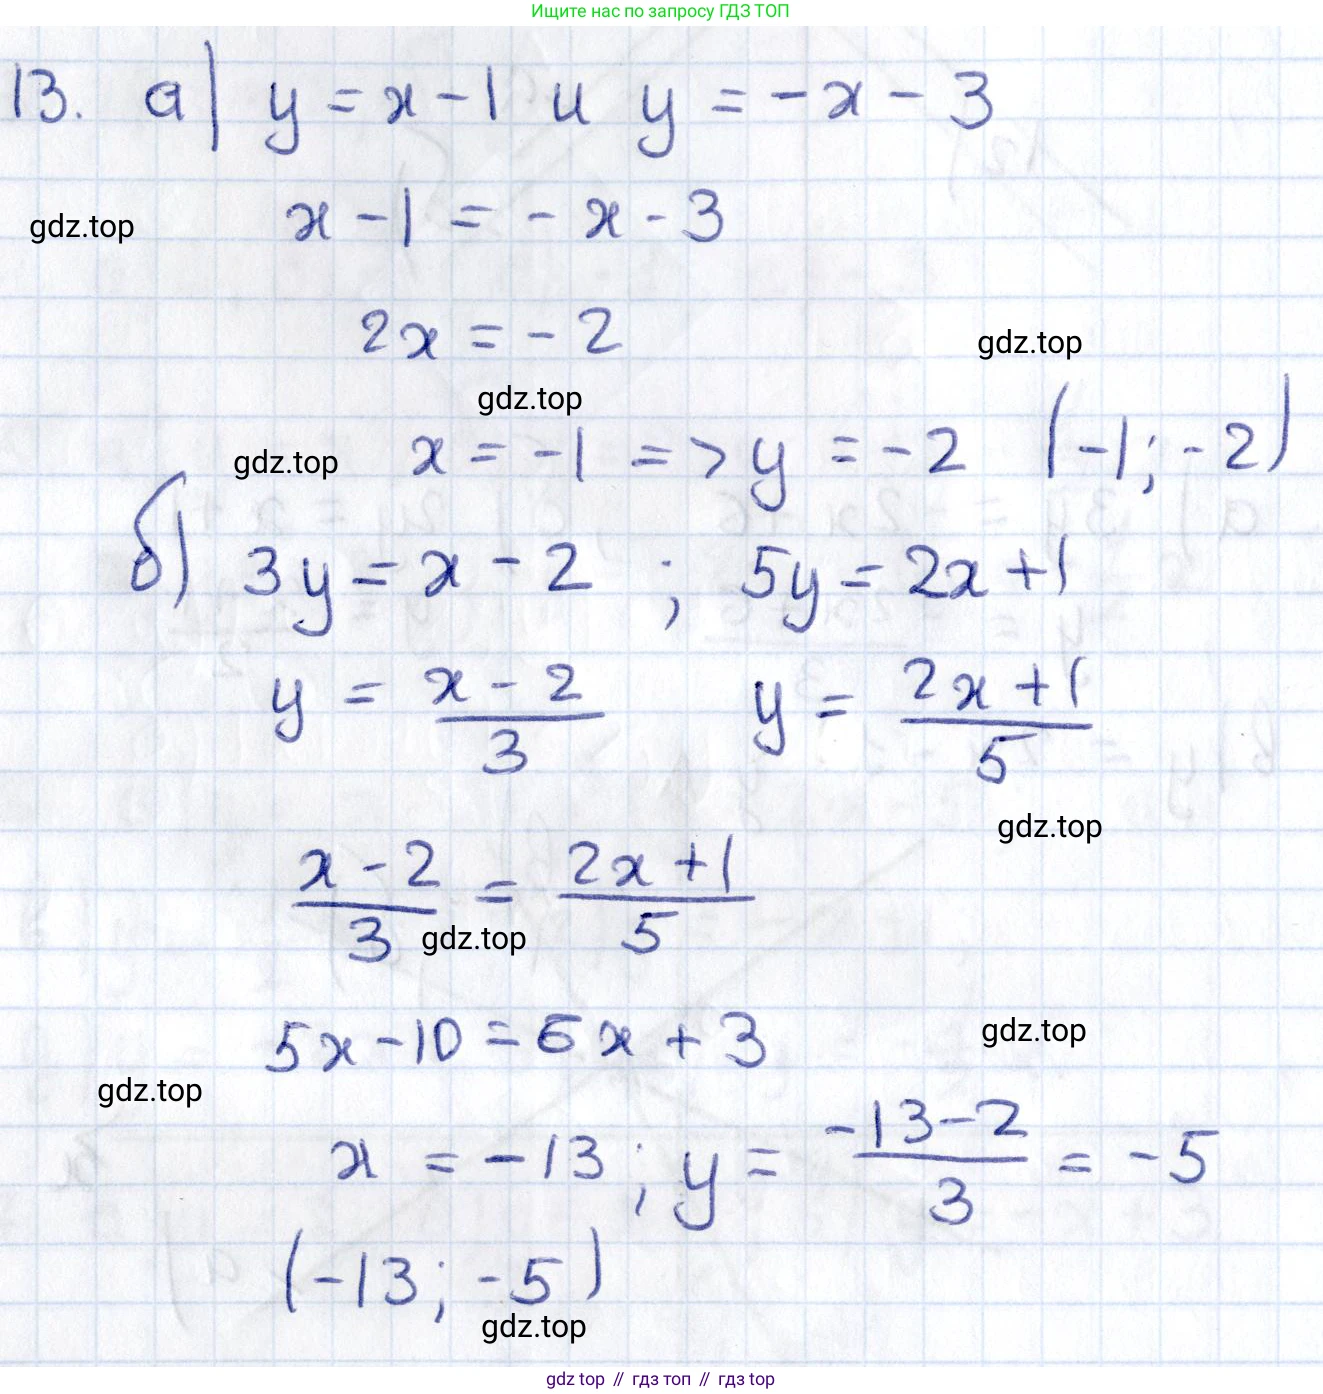 Ищите нас по запросу ГДЗ ТОП
13. а) y = x - 1 и y = - x - 3
gdz.top
x - 1 = - x - 3
2x = - 2
gdz.top
gdz.top
gdz.top
x = - 1 => y = - 2 (-1; -2)
б) 3y = x - 2 ; 5y = 2x + 1
y = (x - 2)/3 y = (2x + 1)/5
gdz.top
(x - 2)/3 = (2x + 1)/5
gdz.top
5x - 10 = 6x + 3
gdz.top
gdz.top
x = - 13; y = (-13 - 2)/3 = - 5
(-13; -5)
gdz.top
gdz top // гдз топ // gdz top